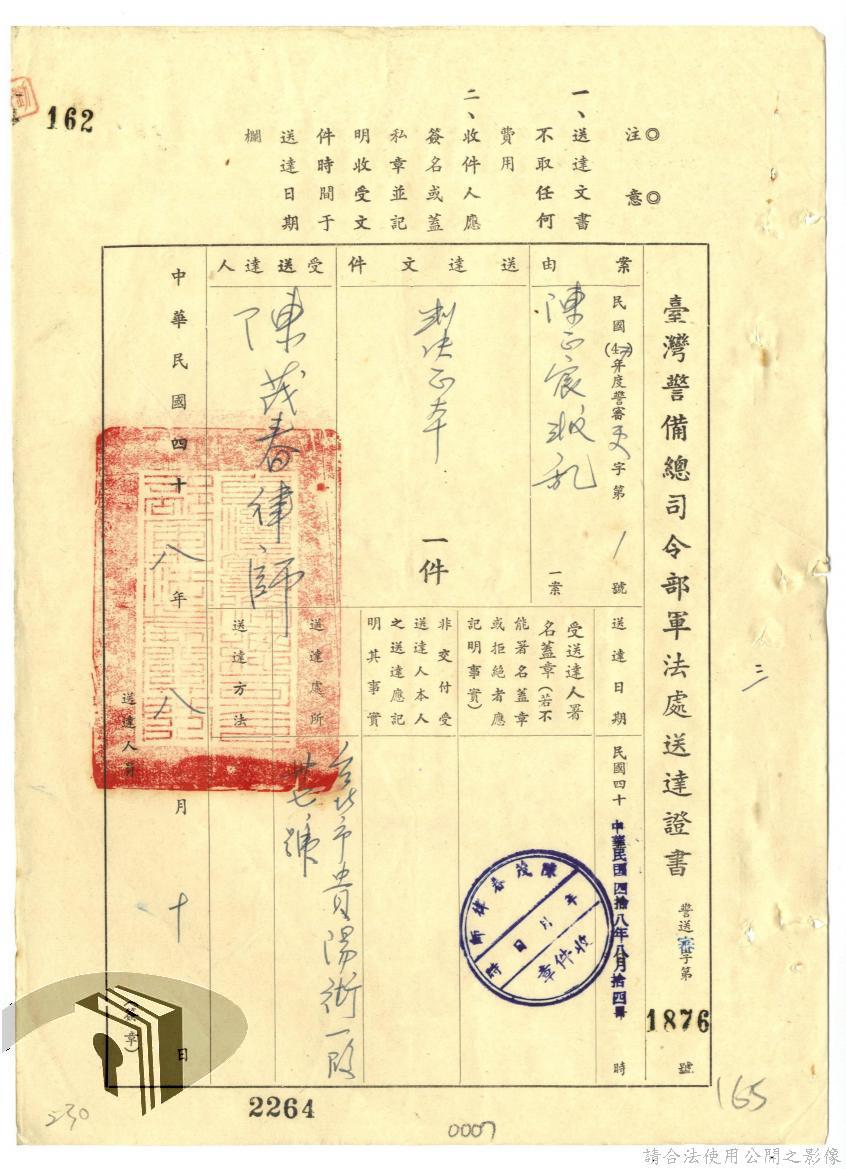 162
◎注意◎
一、送達文書
不取任何
費用
二、收件人應
簽名或蓋
私章並記
明收受文
件時間于
送達日期
欄
臺灣警備總司令部軍法處送達證書
警送審字第
1876
號
案由
民國(47)年度警審更字第1號
陳正宸叛乱
一案
送達文件
判决正本
一件
受送達人
陳茂春律師
送達日期
民國四十
中華民國四拾八年八月拾四日
時
受送達人署
名蓋章(若不
能署名蓋章
或拒絕者應
記明事實)
陳茂春律師
年月日時
收件章
非交付受
送達人本人
之送達應記
明其事實
送達處所
台北市貴陽街一段
廿七號
送達方法
中華民國四十八年八月十日
送達人員
(簽章)
2264
0007
165
230
請合法使用公開之影像